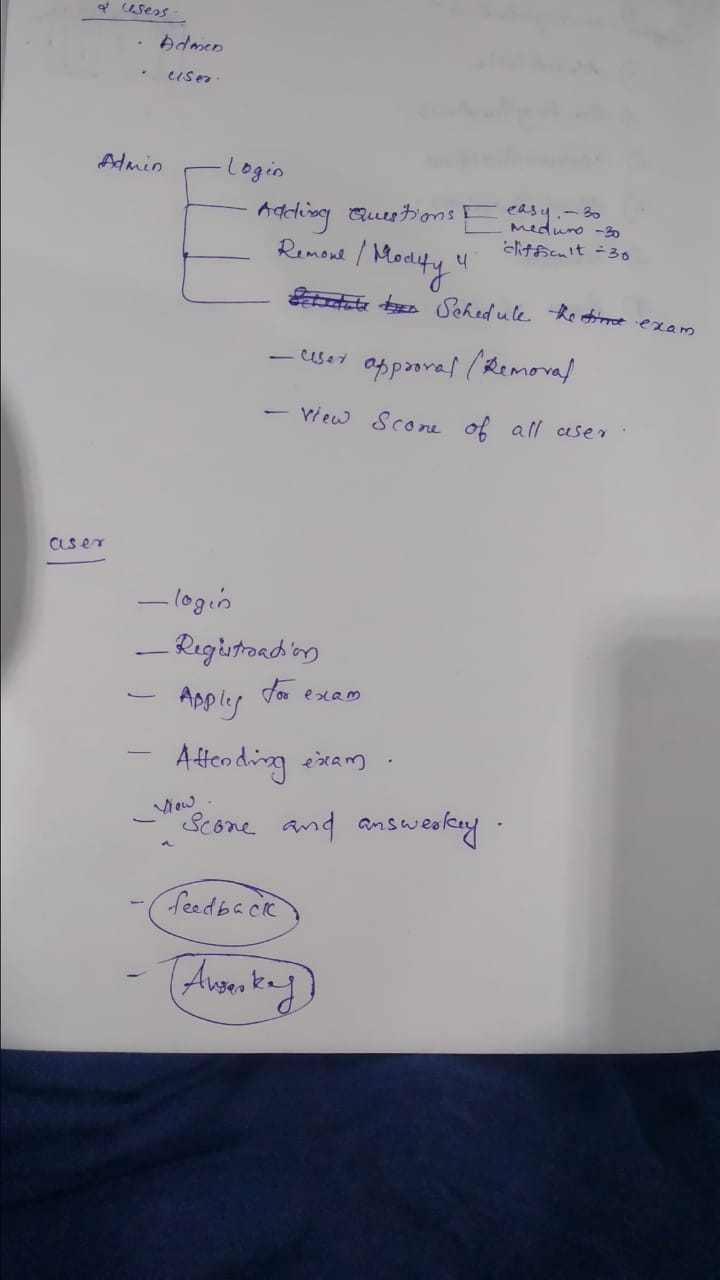 2 users.
· Admin
· user.
Admin
Login
Adding Questions easy. - 30
Medium - 30
difficult - 30
Remove / Modify "
Schedule the time exam
- user approval / Removal
- View Score of all user.
user
- login
- Registration
- Apply for exam
- Attending exam.
- view Score and answerkey.
- feedback
- Answerkey